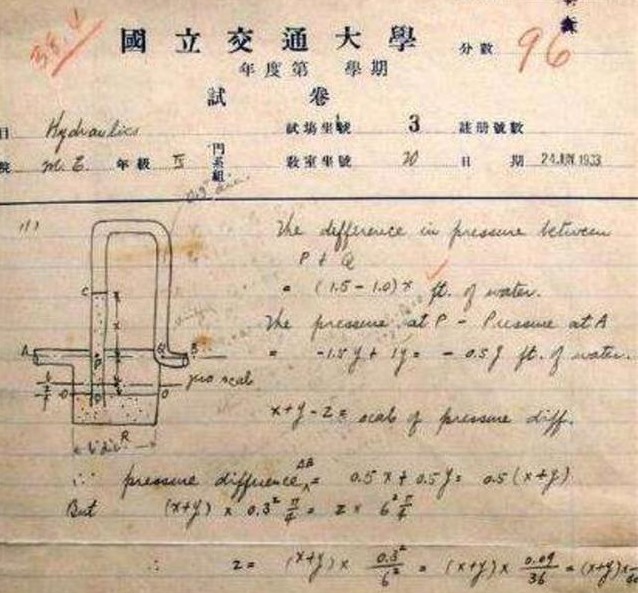 38.4
國立交通大學 分數 96
年度第 學期
試 卷
目 Hydraulics 試場坐號 3 註冊號數
院 M. E. 年級 IV 門系組 教室坐號 20 日 期 24 JUN 1933
0.3" dia.
(1) The difference in pressure between
P & Q
= (1.5 - 1.0) x ft. of water.
The pressure at P - Pressure at A
= -1.5 y + 1 y = - 0.5 y ft. of water.
C
A P B
zero scale
O O
R
x + y - z = scale of pressure diff.
∴ pressure difference AB = 0.5 x + 0.5 y = 0.5 (x+y)
But (x+y) x 0.3² π/4 = z x 6² π/4
∴ z = (x+y) x 0.3²/6² = (x+y) x 0.09/36 = (x+y) x